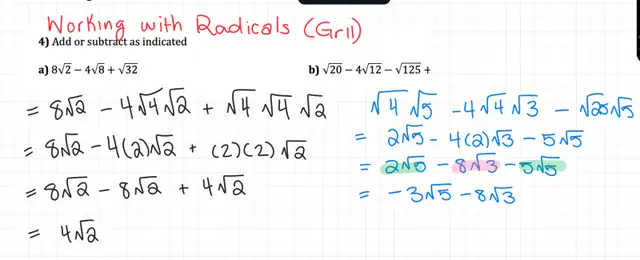 Working with Radicals (Gr11)
4) Add or subtract as indicated
a) 8√2 − 4√8 + √32
b) √20 − 4√12 − √125 +
= 8√2 − 4√4√2 + √4 √4 √2
= 8√2 − 4(2)√2 + (2)(2)√2
= 8√2 − 8√2 + 4√2
= 4√2
√4 √5 −4√4√3 − √25√5
= 2√5 − 4(2)√3 − 5√5
= 2√5 − 8√3 − 5√5
= −3√5 − 8√3